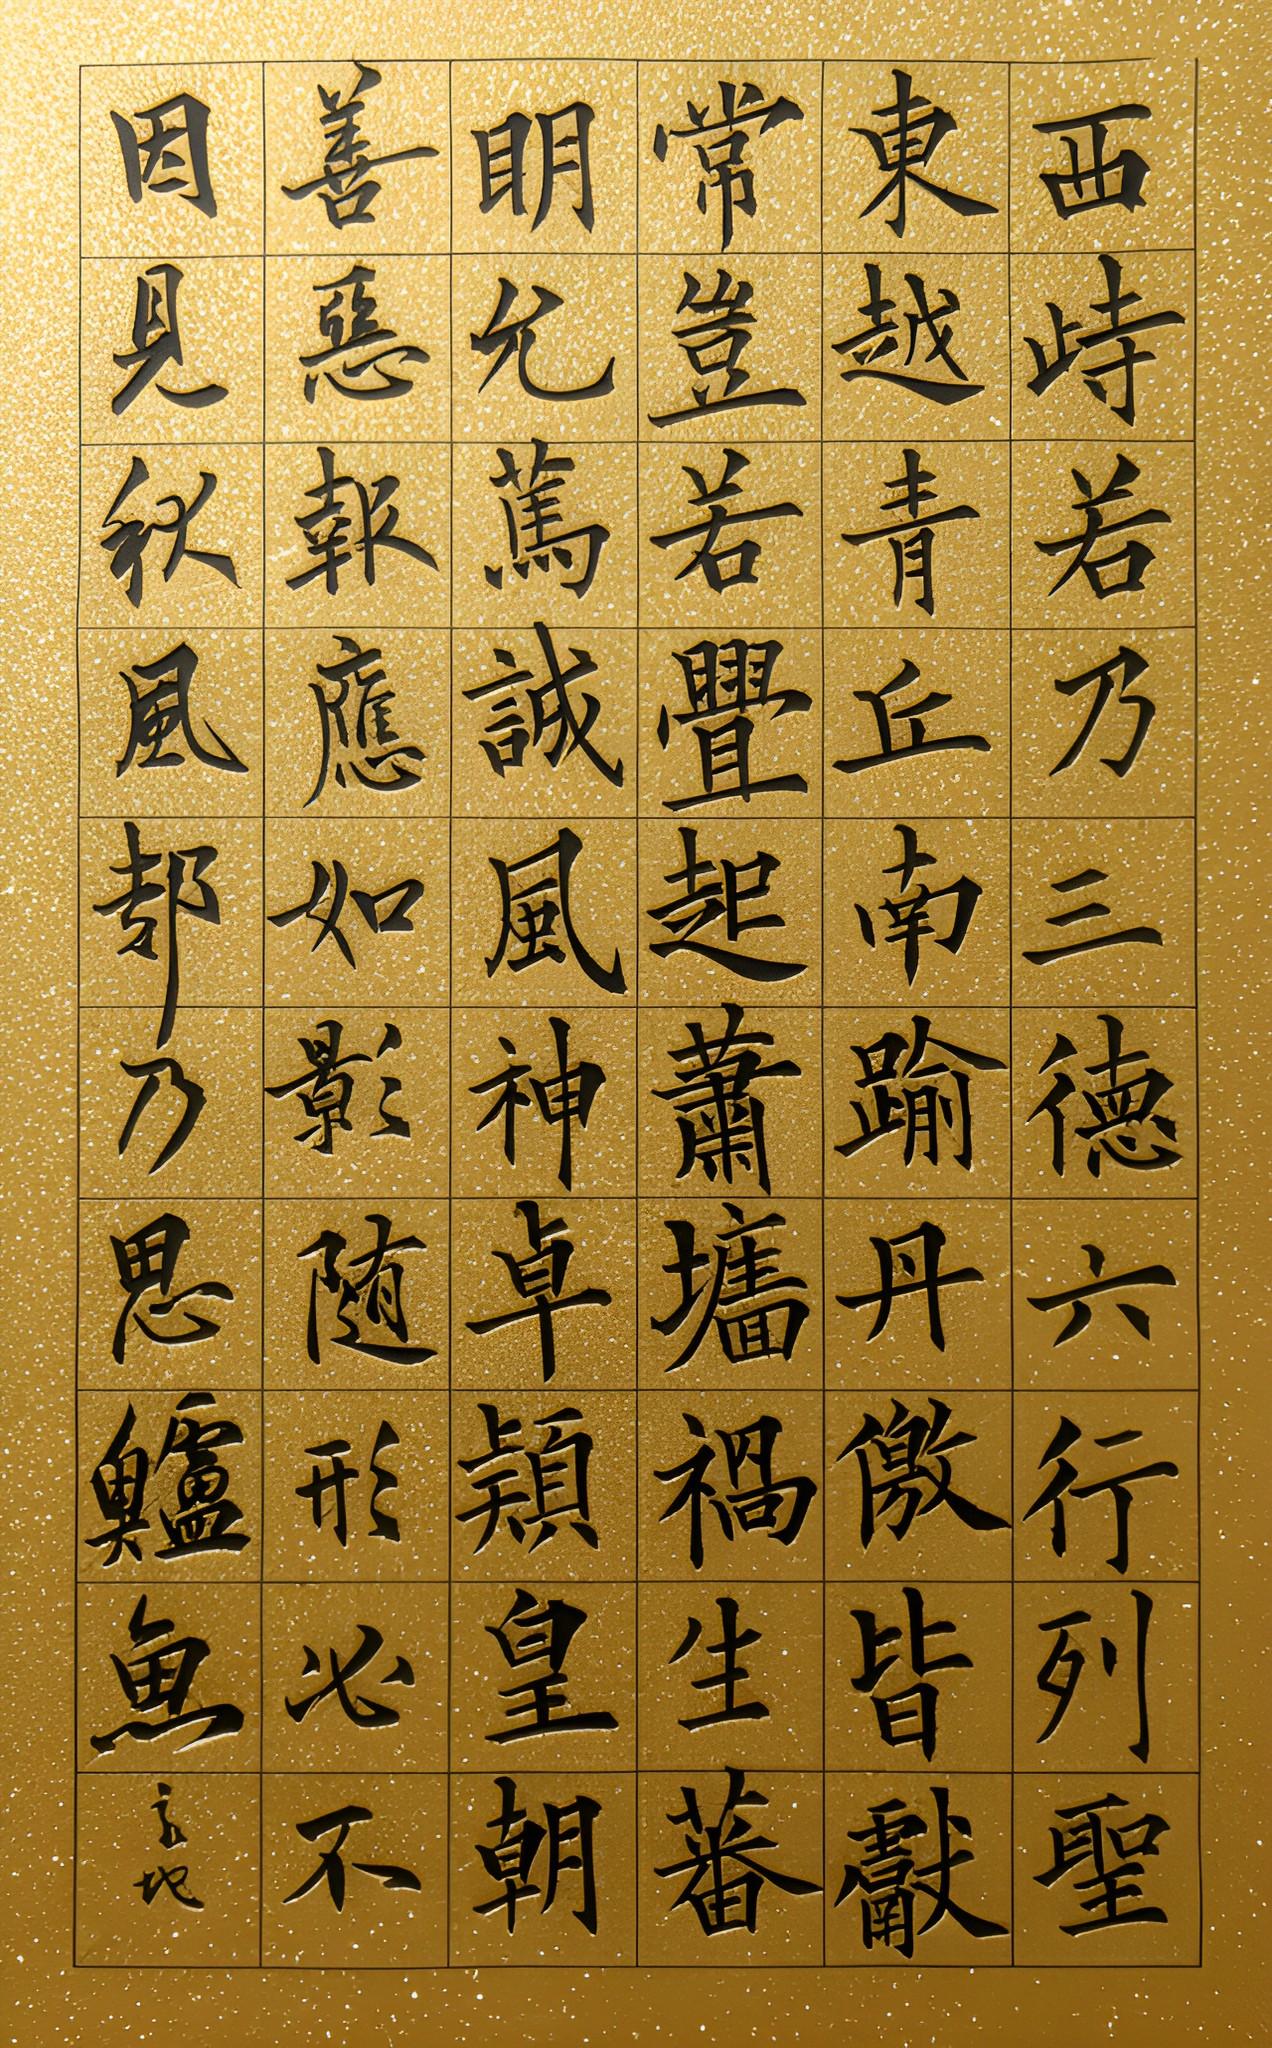 西峙若乃三德六行列聖
東越青丘南踰丹儌皆獻
常豈若疊起蕭墻禍生蕃
明允篤誠風神卓穎皇朝
善惡報應如影隨形必不
因見秋風起乃思鱸魚